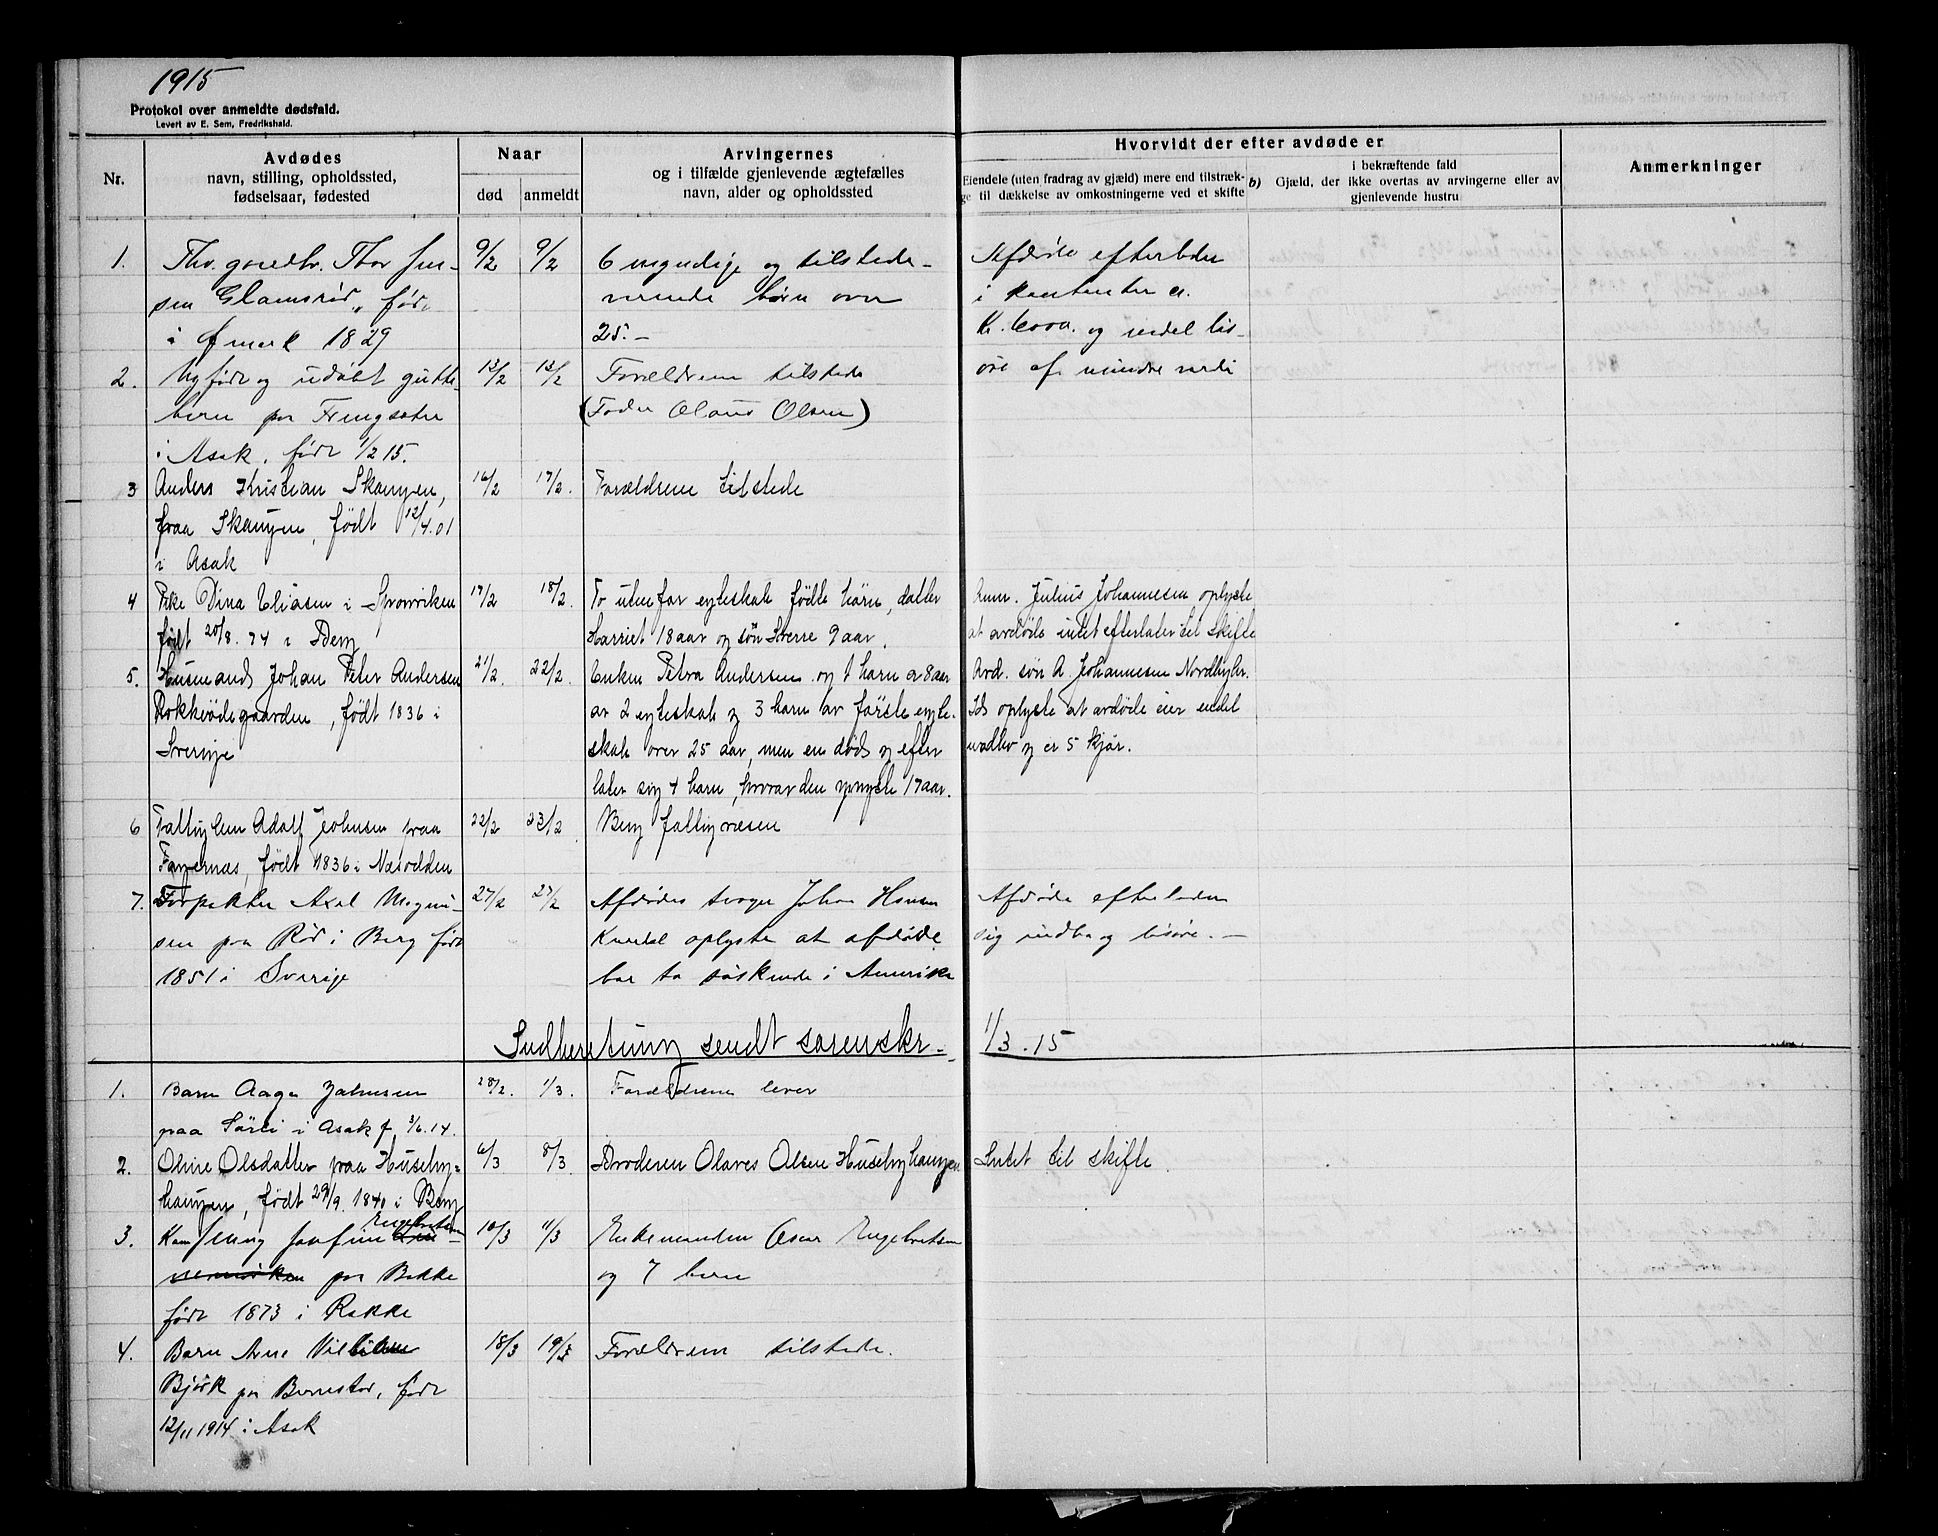 1915
Protokol over anmeldte dødsfald.
Levert av E. Sem, Fredrikshald.
Nr.
Avdødes
navn, stilling, opholdssted,
fødselsaar, fødested
Naar
død
anmeldt
Arvingernes
og i tilfælde gjenlevende ægtefælles
navn, alder og opholdssted
Hvorvidt der efter avdøde er
Eiendele (uten fradrag av gjæld) mere end tilstræk-
ge til dækkelse av omkostningerne ved et skifte
b)
i bekræftende fald
Gjæld, der ikke overtas av arvingerne eller av
gjenlevende hustru
Anmerkninger
1.
Thor Jen-
sen Glamsrød, fød
i Ømark 1829
9/2
9/2
6 myndige og tilstede-
værende børn over
25.-
Afdøde efterloder
i kontanter ca.
Kr. 6000. og endel løs-
øre af mindre verdi
2.
Nyfødt og udøbt gutte-
barn paa
i Asak. født 1/2 15.
13/2
15/2
Forældrene tilstede
(Fader Olaus Olsen)
3
Anders Kristian Skaugen,
fraa Skaugen, født 12/4.01
i Asak
16/2
17/2.
Forældrene tilstede
4
Pike Dina Eliasen i Sponviken
født 20/8.74 i Berg
17/2
18/2.
To utenfor egteskab födte børn, datter
Harriet 18 aar og søn Sverre 9 aar.
Anm. Julius Johannesen oplyste
at avdøde intet efterlater til skifte
5.
Husmand Johan Peter Andersen
Rokkeødegaarden, født 1836 i
Sverige
21/2.
22/2.
Enken Petra Andersen og 1 barn 8 aar
av 2 egteskab og 3 barn av første egte-
skab over 25 aar, men en død og efter
later sig 4 barn, hvorav den yngste 17 aar.
Avd. søn A. Johannesen Nordby
Ids oplyste at avdøde eier endel
indbo og er 5 kjör.
6
Fattiglem Adolf Johnsen fraa
Fagernæs, født 1836 i Næsodden
22/2
23/2
Berg fattigvæsen
7.
Forpakter Axel Magnu-
sen paa Rød i Berg født
1851 i Sverige
27/2
27/2
Afdødes svoger Johan Hansen
oplyste at afdøde
har to søskende i Amerika
Afdøde efterloder
sig indbo og løsøre.-
Indberetning sendt sorenskr.
1/3.15
1.
Barn Aage Johnsen
paa Sørli i Asak f 3/6.14.
28/2.
1/3.
Forældrene lever
2.
Oline Olsdatter fraa Huseby-
haugen, født 29/9.1840 i Berg
6/3
8/3.
Broderen Olaves Olsen Husebyhaugen
Intet til skifte.
3.
Kone Jenny Josefine Engebretsen
paa Bakke
født 1873 i Rakke
10/3
11/3
Enkemanden Oscar Engebretsen
og 7 barn
4.
Barn Arne
Bjørk paa, født
12/11 1914 i Asak
18/3
19/3
Forældrene tilstede.